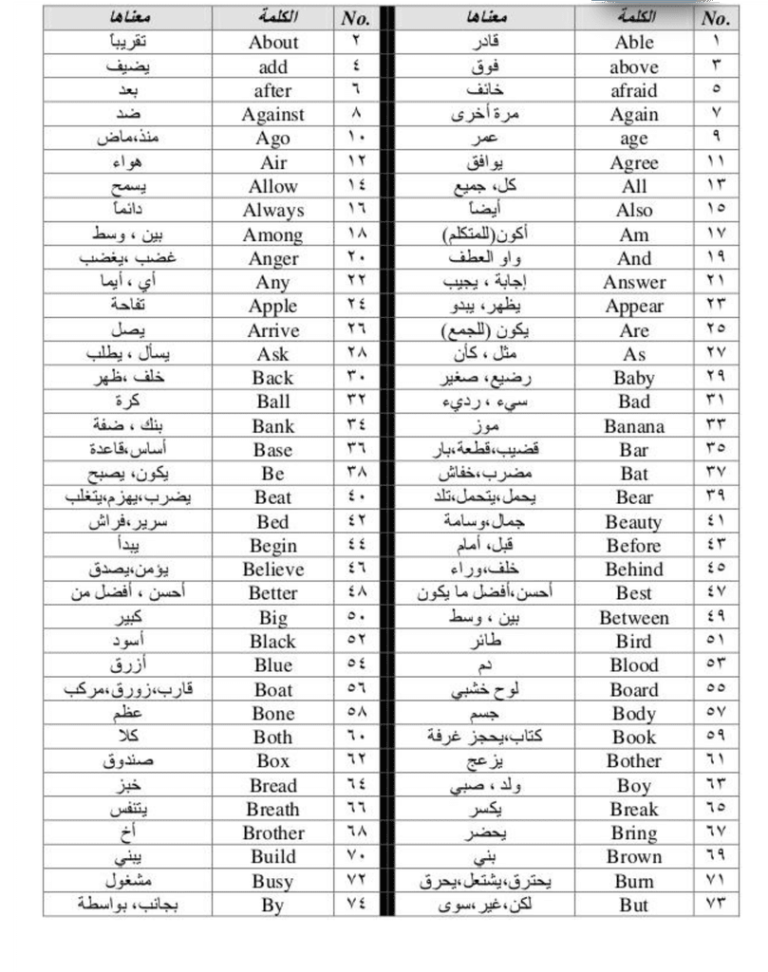 No. الكلمة معناها No. الكلمة معناها
١ Able قادر ٢ About تقريباً
٣ above فوق ٤ add يضيف
٥ afraid خائف ٦ after بعد
٧ Again مرة أخرى ٨ Against ضد
٩ age عمر ١٠ Ago منذ،ماض
١١ Agree يوافق ١٢ Air هواء
١٣ All كل، جميع ١٤ Allow يسمح
١٥ Also أيضاً ١٦ Always دائماً
١٧ Am أكون(للمتكلم) ١٨ Among بين ، وسط
١٩ And واو العطف ٢٠ Anger غضب ،يغضب
٢١ Answer إجابة ، يجيب ٢٢ Any أي ، أيما
٢٣ Appear يظهر، يبدو ٢٤ Apple تفاحة
٢٥ Are يكون (للجمع) ٢٦ Arrive يصل
٢٧ As مثل ، كأن ٢٨ Ask يسأل ، يطلب
٢٩ Baby رضيع، صغير ٣٠ Back خلف ،ظهر
٣١ Bad سيء ، رديء ٣٢ Ball كرة
٣٣ Banana موز ٣٤ Bank بنك ، ضفة
٣٥ Bar قضيب،قطعة،بار ٣٦ Base أساس،قاعدة
٣٧ Bat مضرب،خفاش ٣٨ Be يكون، يصبح
٣٩ Bear يحمل،يتحمل،تلد ٤٠ Beat يضرب،يهزم،يتغلب
٤١ Beauty جمال،وسامة ٤٢ Bed سرير،فراش
٤٣ Before قبل، أمام ٤٤ Begin يبدأ
٤٥ Behind خلف،وراء ٤٦ Believe يؤمن،يصدق
٤٧ Best أحسن،أفضل ما يكون ٤٨ Better أحسن ، أفضل من
٤٩ Between بين ، وسط ٥٠ Big كبير
٥١ Bird طائر ٥٢ Black أسود
٥٣ Blood دم ٥٤ Blue أزرق
٥٥ Board لوح خشبي ٥٦ Boat قارب،زورق،مركب
٥٧ Body جسم ٥٨ Bone عظم
٥٩ Book كتاب،يحجز غرفة ٦٠ Both كلا
٦١ Bother يزعج ٦٢ Box صندوق
٦٣ Boy ولد ، صبي ٦٤ Bread خبز
٦٥ Break يكسر ٦٦ Breath يتنفس
٦٧ Bring يحضر ٦٨ Brother أخ
٦٩ Brown بني ٧٠ Build يبني
٧١ Burn يحترق،يشتعل،يحرق ٧٢ Busy مشغول
٧٣ But لكن،غير،سوى ٧٤ By بجانب، بواسطة